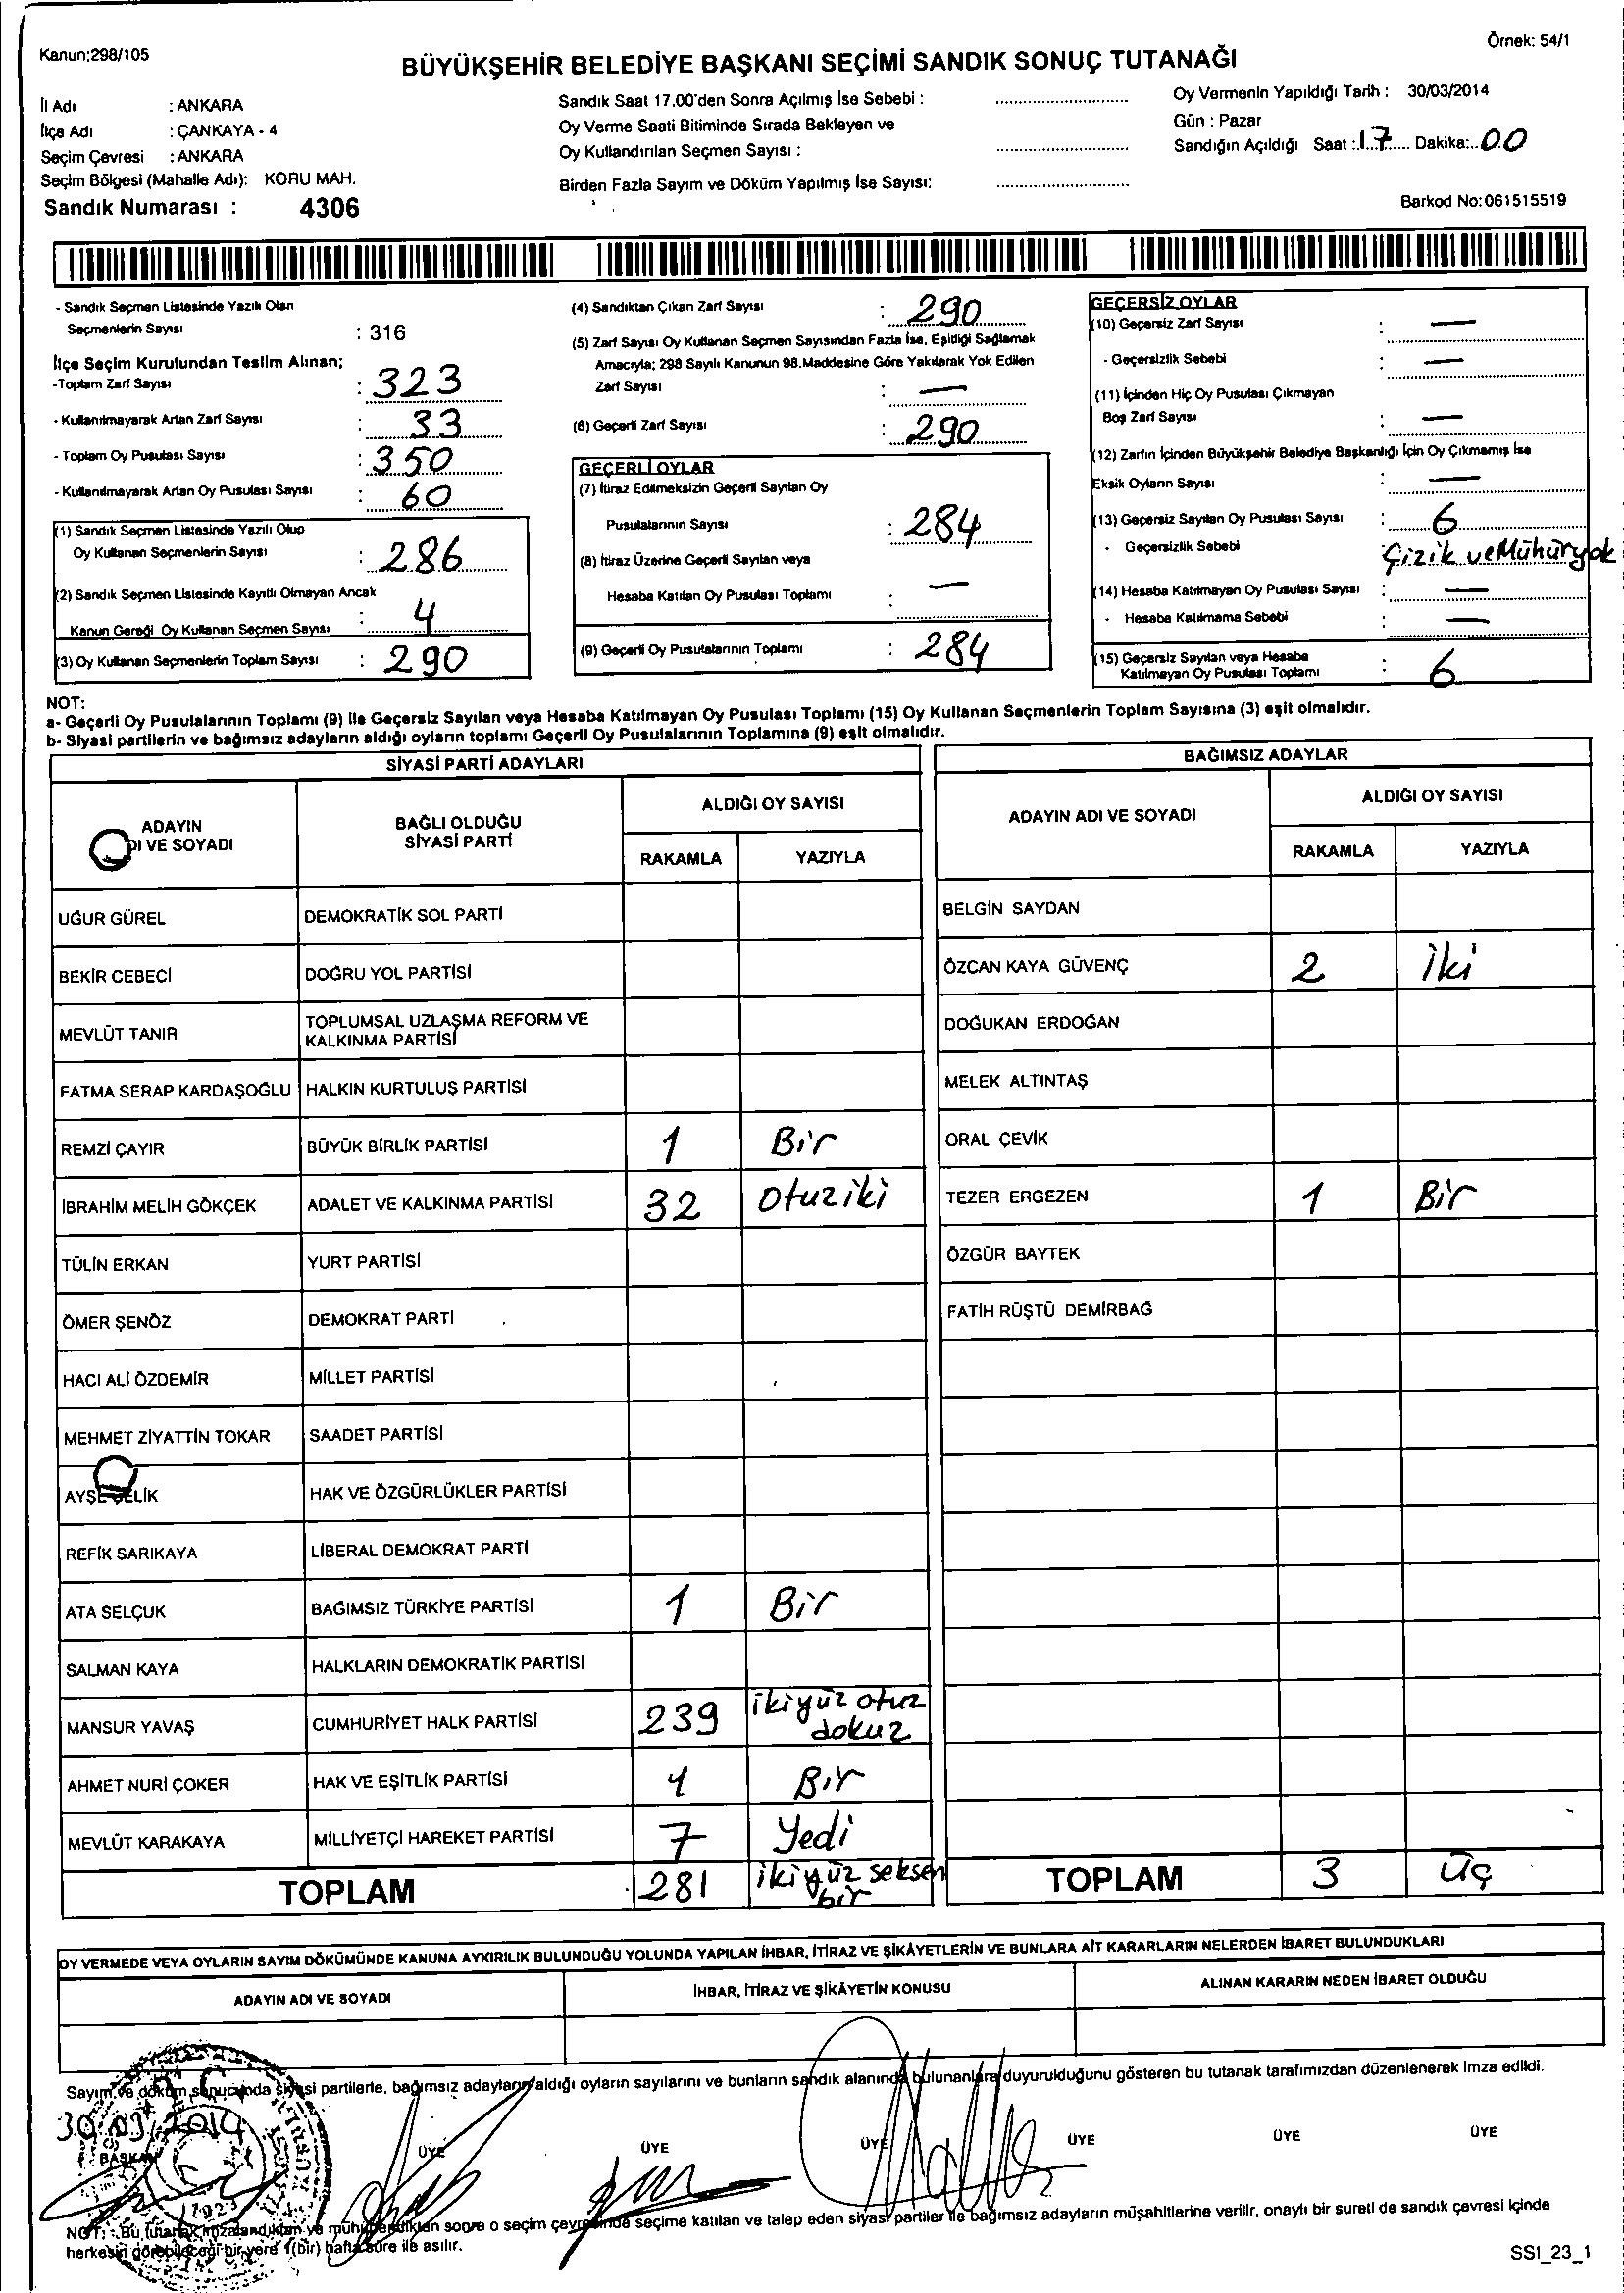 Kanun:298/105
Örnek: 54/1
BÜYÜKŞEHİR BELEDİYE BAŞKANI SEÇİMİ SANDIK SONUÇ TUTANAĞI
İl Adı : ANKARA
İlçe Adı : ÇANKAYA - 4
Seçim Çevresi : ANKARA
Seçim Bölgesi (Mahalle Adı): KORU MAH.
Sandık Numarası : 4306
Sandık Saat 17.00'den Sonra Açılmış İse Sebebi :
Oy Verme Saati Bitiminde Sırada Bekleyen ve
Oy Kullandırılan Seçmen Sayısı :
Birden Fazla Sayım ve Döküm Yapılmış İse Sayısı:
Oy Vermenin Yapıldığı Tarih : 30/03/2014
Gün : Pazar
Sandığın Açıldığı Saat : 17 Dakika: 00
Barkod No:061515519
- Sandık Seçmen Listesinde Yazılı Olan
Seçmenlerin Sayısı : 316
İlçe Seçim Kurulundan Teslim Alınan;
-Toplam Zarf Sayısı : 323
- Kullanılmayarak Artan Zarf Sayısı : 33
- Toplam Oy Pusulası Sayısı : 350
- Kullanılmayarak Artan Oy Pusulası Sayısı : 60
(1) Sandık Seçmen Listesinde Yazılı Olup
Oy Kullanan Seçmenlerin Sayısı : 286
(2) Sandık Seçmen Listesinde Kayıtlı Olmayan Ancak
Kanun Gereği Oy Kullanan Seçmen Sayısı : 4
(3) Oy Kullanan Seçmenlerin Toplam Sayısı : 290
(4) Sandıktan Çıkan Zarf Sayısı : 290
(5) Zarf Sayısı Oy Kullanan Seçmen Sayısından Fazla İse, Eşitliği Sağlamak
Amacıyla; 298 Sayılı Kanunun 98.Maddesine Göre Yakılarak Yok Edilen
Zarf Sayısı : —
(6) Geçerli Zarf Sayısı : 290
GEÇERLİ OYLAR
(7) İtiraz Edilmeksizin Geçerli Sayılan Oy
Pusulalarının Sayısı : 284
(8) İtiraz Üzerine Geçerli Sayılan veya
Hesaba Katılan Oy Pusulası Toplamı : —
(9) Geçerli Oy Pusulalarının Toplamı : 284
GEÇERSİZ OYLAR
(10) Geçersiz Zarf Sayısı : —
- Geçersizlik Sebebi : —
(11) İçinden Hiç Oy Pusulası Çıkmayan
Boş Zarf Sayısı : —
(12) Zarfın İçinden Büyükşehir Belediye Başkanlığı İçin Oy Çıkmamış İse
Eksik Oyların Sayısı : —
(13) Geçersiz Sayılan Oy Pusulası Sayısı : 6
- Geçersizlik Sebebi : Çizik ve Mühür yok
(14) Hesaba Katılmayan Oy Pusulası Sayısı : —
- Hesaba Katılmama Sebebi : —
(15) Geçersiz Sayılan veya Hesaba
Katılmayan Oy Pusulası Toplamı : 6
NOT:
a- Geçerli Oy Pusulalarının Toplamı (9) ile Geçersiz Sayılan veya Hesaba Katılmayan Oy Pusulası Toplamı (15) Oy Kullanan Seçmenlerin Toplam Sayısına (3) eşit olmalıdır.
b- Siyasi partilerin ve bağımsız adayların aldığı oyların toplamı Geçerli Oy Pusulalarının Toplamına (9) eşit olmalıdır.
SİYASİ PARTİ ADAYLARI
ADAYIN
DI VE SOYADI
BAĞLI OLDUĞU
SİYASİ PARTİ
ALDIĞI OY SAYISI
RAKAMLA YAZIYLA
UĞUR GÜREL DEMOKRATİK SOL PARTİ
BEKİR CEBECİ DOĞRU YOL PARTİSİ
MEVLÜT TANIR TOPLUMSAL UZLAŞMA REFORM VE
KALKINMA PARTİSİ
FATMA SERAP KARDAŞOĞLU HALKIN KURTULUŞ PARTİSİ
REMZİ ÇAYIR BÜYÜK BİRLİK PARTİSİ 1 Bir
İBRAHİM MELİH GÖKÇEK ADALET VE KALKINMA PARTİSİ 32 otuziki
TÜLİN ERKAN YURT PARTİSİ
ÖMER ŞENÖZ DEMOKRAT PARTİ
HACI ALİ ÖZDEMİR MİLLET PARTİSİ
MEHMET ZİYATTİN TOKAR SAADET PARTİSİ
AYŞE ÇELİK HAK VE ÖZGÜRLÜKLER PARTİSİ
REFİK SARIKAYA LİBERAL DEMOKRAT PARTİ
ATA SELÇUK BAĞIMSIZ TÜRKİYE PARTİSİ 1 Bir
SALMAN KAYA HALKLARIN DEMOKRATİK PARTİSİ
MANSUR YAVAŞ CUMHURİYET HALK PARTİSİ 239 ikiyüz otuz
dokuz
AHMET NURİ ÇOKER HAK VE EŞİTLİK PARTİSİ 1 Bir
MEVLÜT KARAKAYA MİLLİYETÇİ HAREKET PARTİSİ 7 Yedi
TOPLAM 281 ikiyüz seksen
bir
BAĞIMSIZ ADAYLAR
ADAYIN ADI VE SOYADI
ALDIĞI OY SAYISI
RAKAMLA YAZIYLA
BELGİN SAYDAN
ÖZCAN KAYA GÜVENÇ 2 İki
DOĞUKAN ERDOĞAN
MELEK ALTINTAŞ
ORAL ÇEVİK
TEZER ERGEZEN 1 Bir
ÖZGÜR BAYTEK
FATİH RÜŞTÜ DEMİRBAĞ
TOPLAM 3 üç
OY VERMEDE VEYA OYLARIN SAYIM DÖKÜMÜNDE KANUNA AYKIRILIK BULUNDUĞU YOLUNDA YAPILAN İHBAR, İTİRAZ VE ŞİKÂYETLERİN VE BUNLARA AİT KARARLARIN NELERDEN İBARET BULUNDUKLARI
ADAYIN ADI VE SOYADI
İHBAR, İTİRAZ VE ŞİKÂYETİN KONUSU
ALINAN KARARIN NEDEN İBARET OLDUĞU
Sayım ve döküm sonucunda siyasi partilerle, bağımsız adayların aldığı oyların sayılarını ve bunların sandık alanında bulunanlara duyurulduğunu gösteren bu tutanak tarafımızdan düzenlenerek imza edildi.
30/03/2014
BAŞKAN ÜYE ÜYE ÜYE ÜYE ÜYE ÜYE
NOT: Bu tutanak imzalandıktan ve mühürlendikten sonra o seçim çevresinde seçime katılan ve talep eden siyasi partiler ile bağımsız adayların müşahitlerine verilir, onaylı bir sureti de sandık çevresi içinde
herkesin görebileceği bir yere 1(bir) hafta süre ile asılır.
SSI_23_1